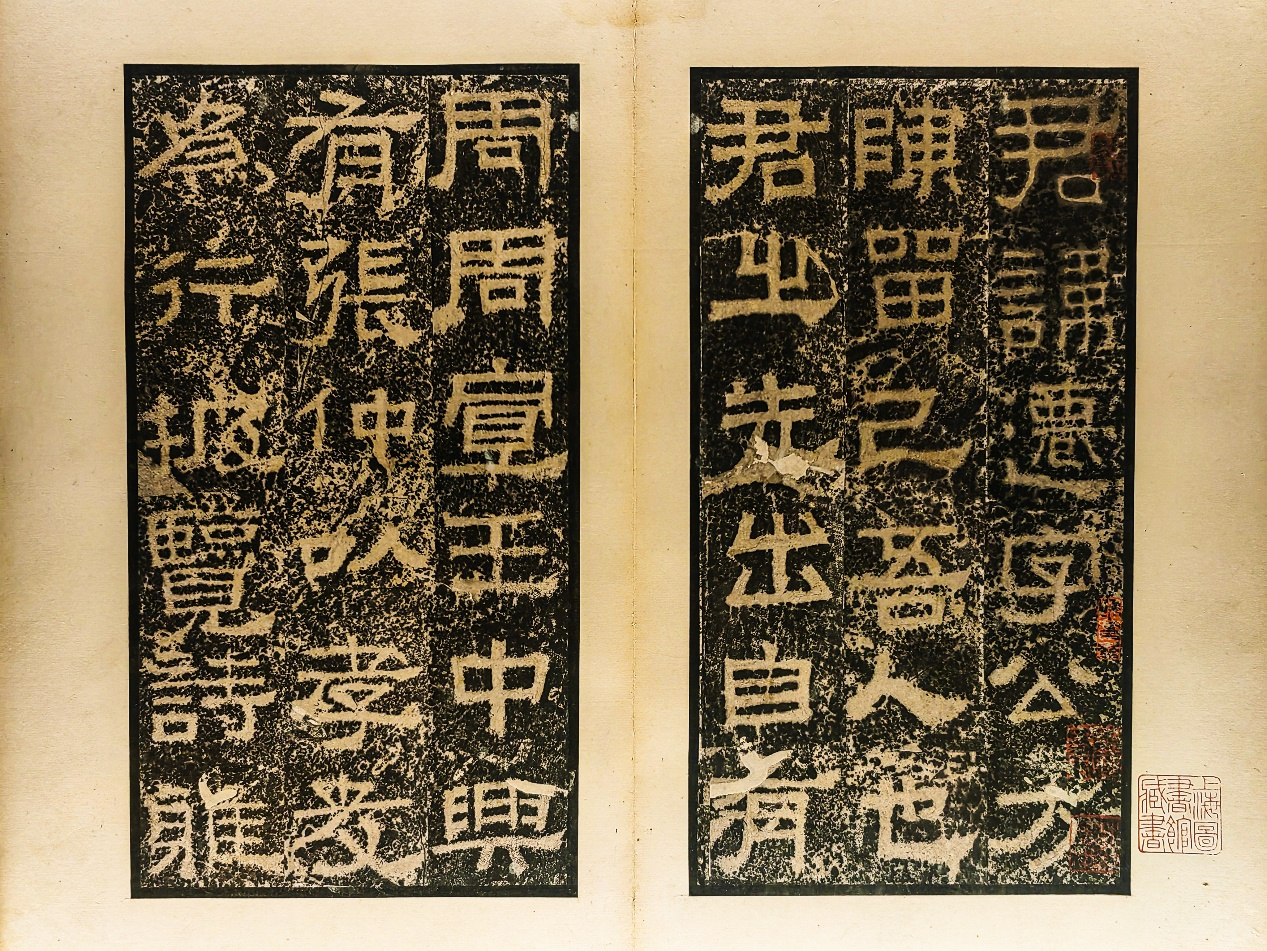 君諱遷字公方
陳留己吾人也
君之先出自有
周周宣王中興
有張仲以孝友
為行披覽詩雅
上海圖
書館
藏書